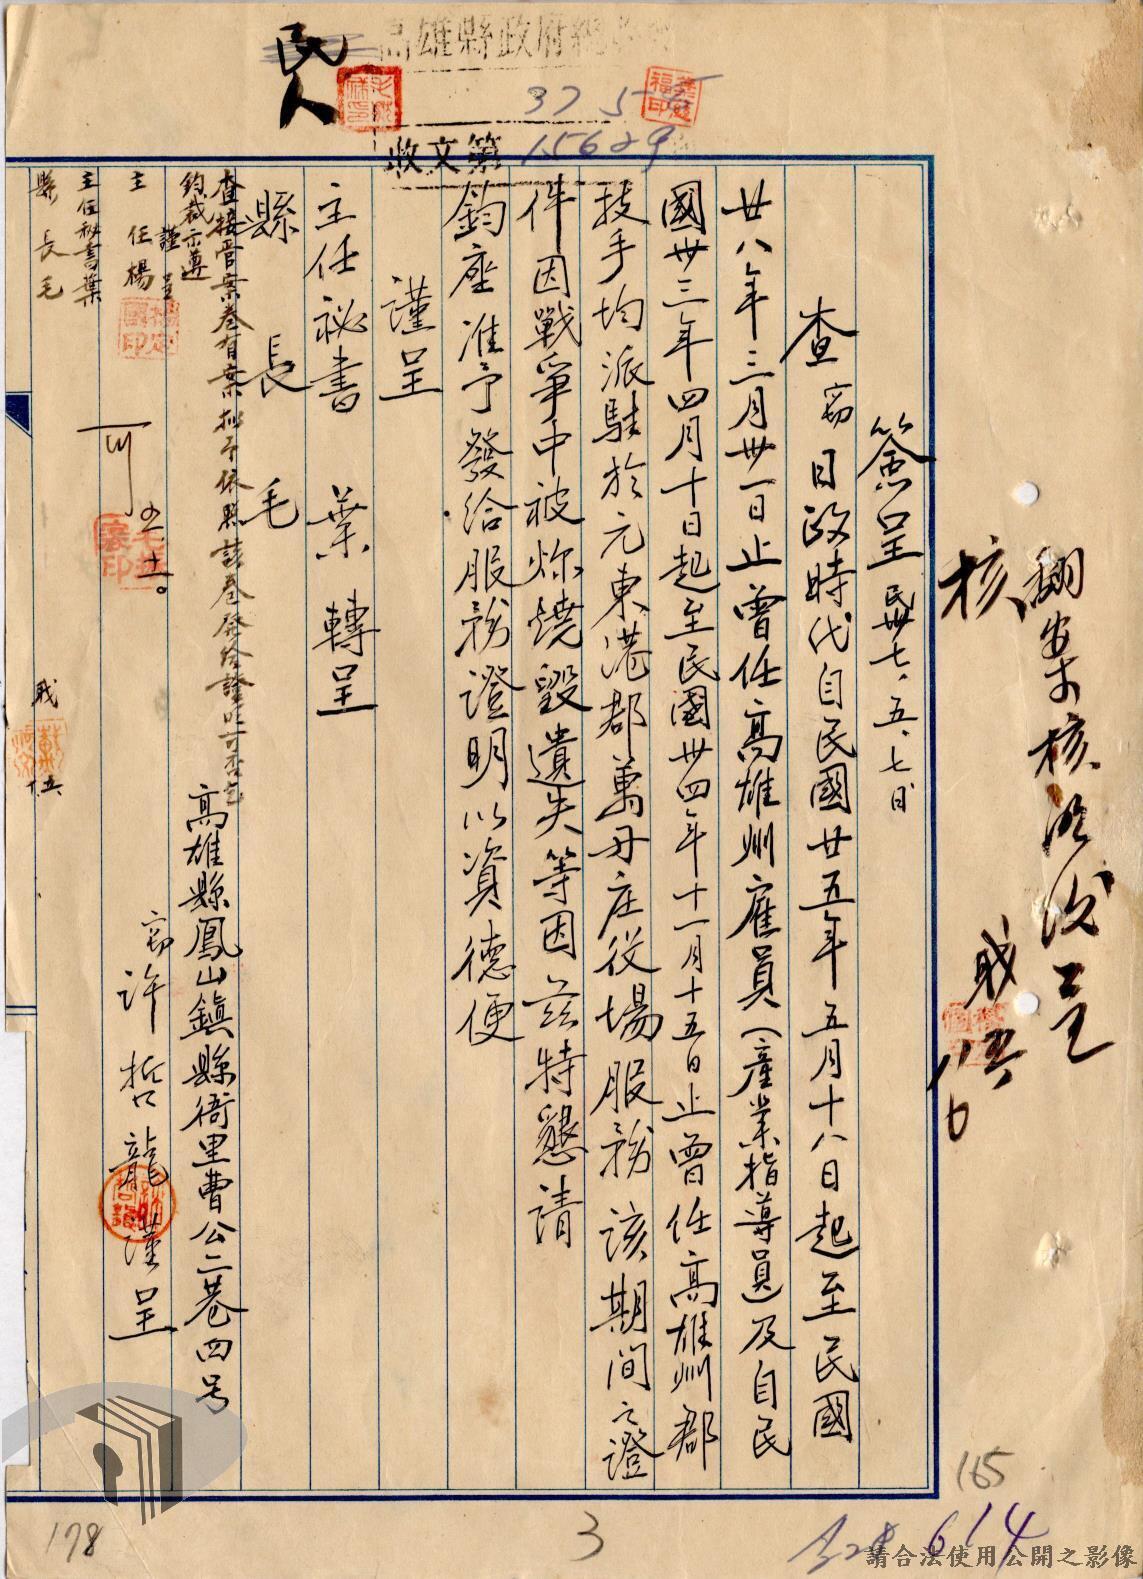 高雄縣政府
收文第
37 5
15629
民人
翻案核
核
簽呈 民卅七、五、七日
查竊日政時代自民國廿五年五月十八日起至民國
廿八年三月卅一日止曾任高雄州雇員(產業指導員)及自民
國卅三年四月十日起至民國卅四年十一月十五日止曾任高雄州郡
技手均派駐於元東港郡萬丹庄役場服務該期間之證
件因戰爭中被炸燒毀遺失等因茲特懇請
鈞座准予發給服務證明以資德便
謹呈
主任秘書 葉 轉呈
縣長 毛
高雄縣鳳山鎮縣衙里曹公二巷四号
竊 許哲龍 謹呈
查接管案卷有案擬予依照該卷發給證明可否乞
鈞裁示遵
謹呈
主任楊
主任秘書葉
縣長毛
可
五、十一。
165
614
3
178
請合法使用公開之影像